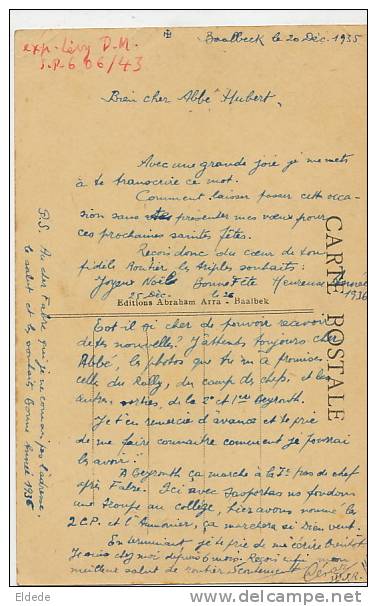 exp. Lévy D.M.
S.P. 6 06/43
Baalbeck le 20 Déc. 1935
Bien cher Abbé Hubert,
Avec une grande joie je me mets
à te transcrire ce mot.
Comment laisser passer cette occa-
sion sans te présenter mes vœux pour
ces prochaines saintes fêtes.
Reçois donc du cœur de ton
fidèle Routier les triples souhaits:
Joyeux Noël Bonne Fête Heureuse Année
25 Déc. le 26 1936
Editions Abraham Arra - Baalbek
CARTE POSTALE
Est-il si cher de pouvoir recevoir
de tes nouvelles? J'attends toujours cher
Abbé, les photos que tu m'a promises
celle du Rally, du camp de chefs, et les
autres sorties, de la 2e et 1ère Beyrouth.
Je t'en remercie d'avance et te prie
de me faire connaître comment je pourrai
les avoir!
A Beyrouth ça marche à la pas de chef
après Fabre. Ici avec fondons
une troupe au collège, hier avons nommé le
2 C.P. et l'Aumônier, ça marchera si Dieu veut.
En terminant je te prie de m'écrire
chez moi depuis 6 mois. Reçois mon
meilleur salut de routier
P.S. Au cher Fabre que je ne connais pas l'adresse,
le salut et les souhaits Bonne Année 1936
Delcampe.net